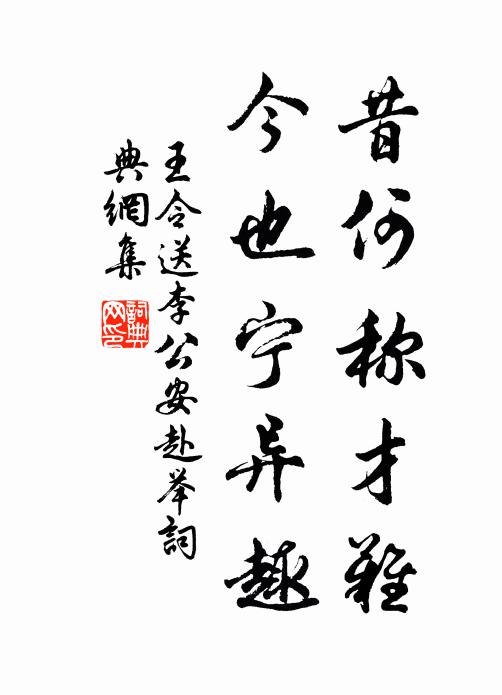 昔何称才難
今也宁异趣
王令送李公安赴举詞
典網集
詞典网印